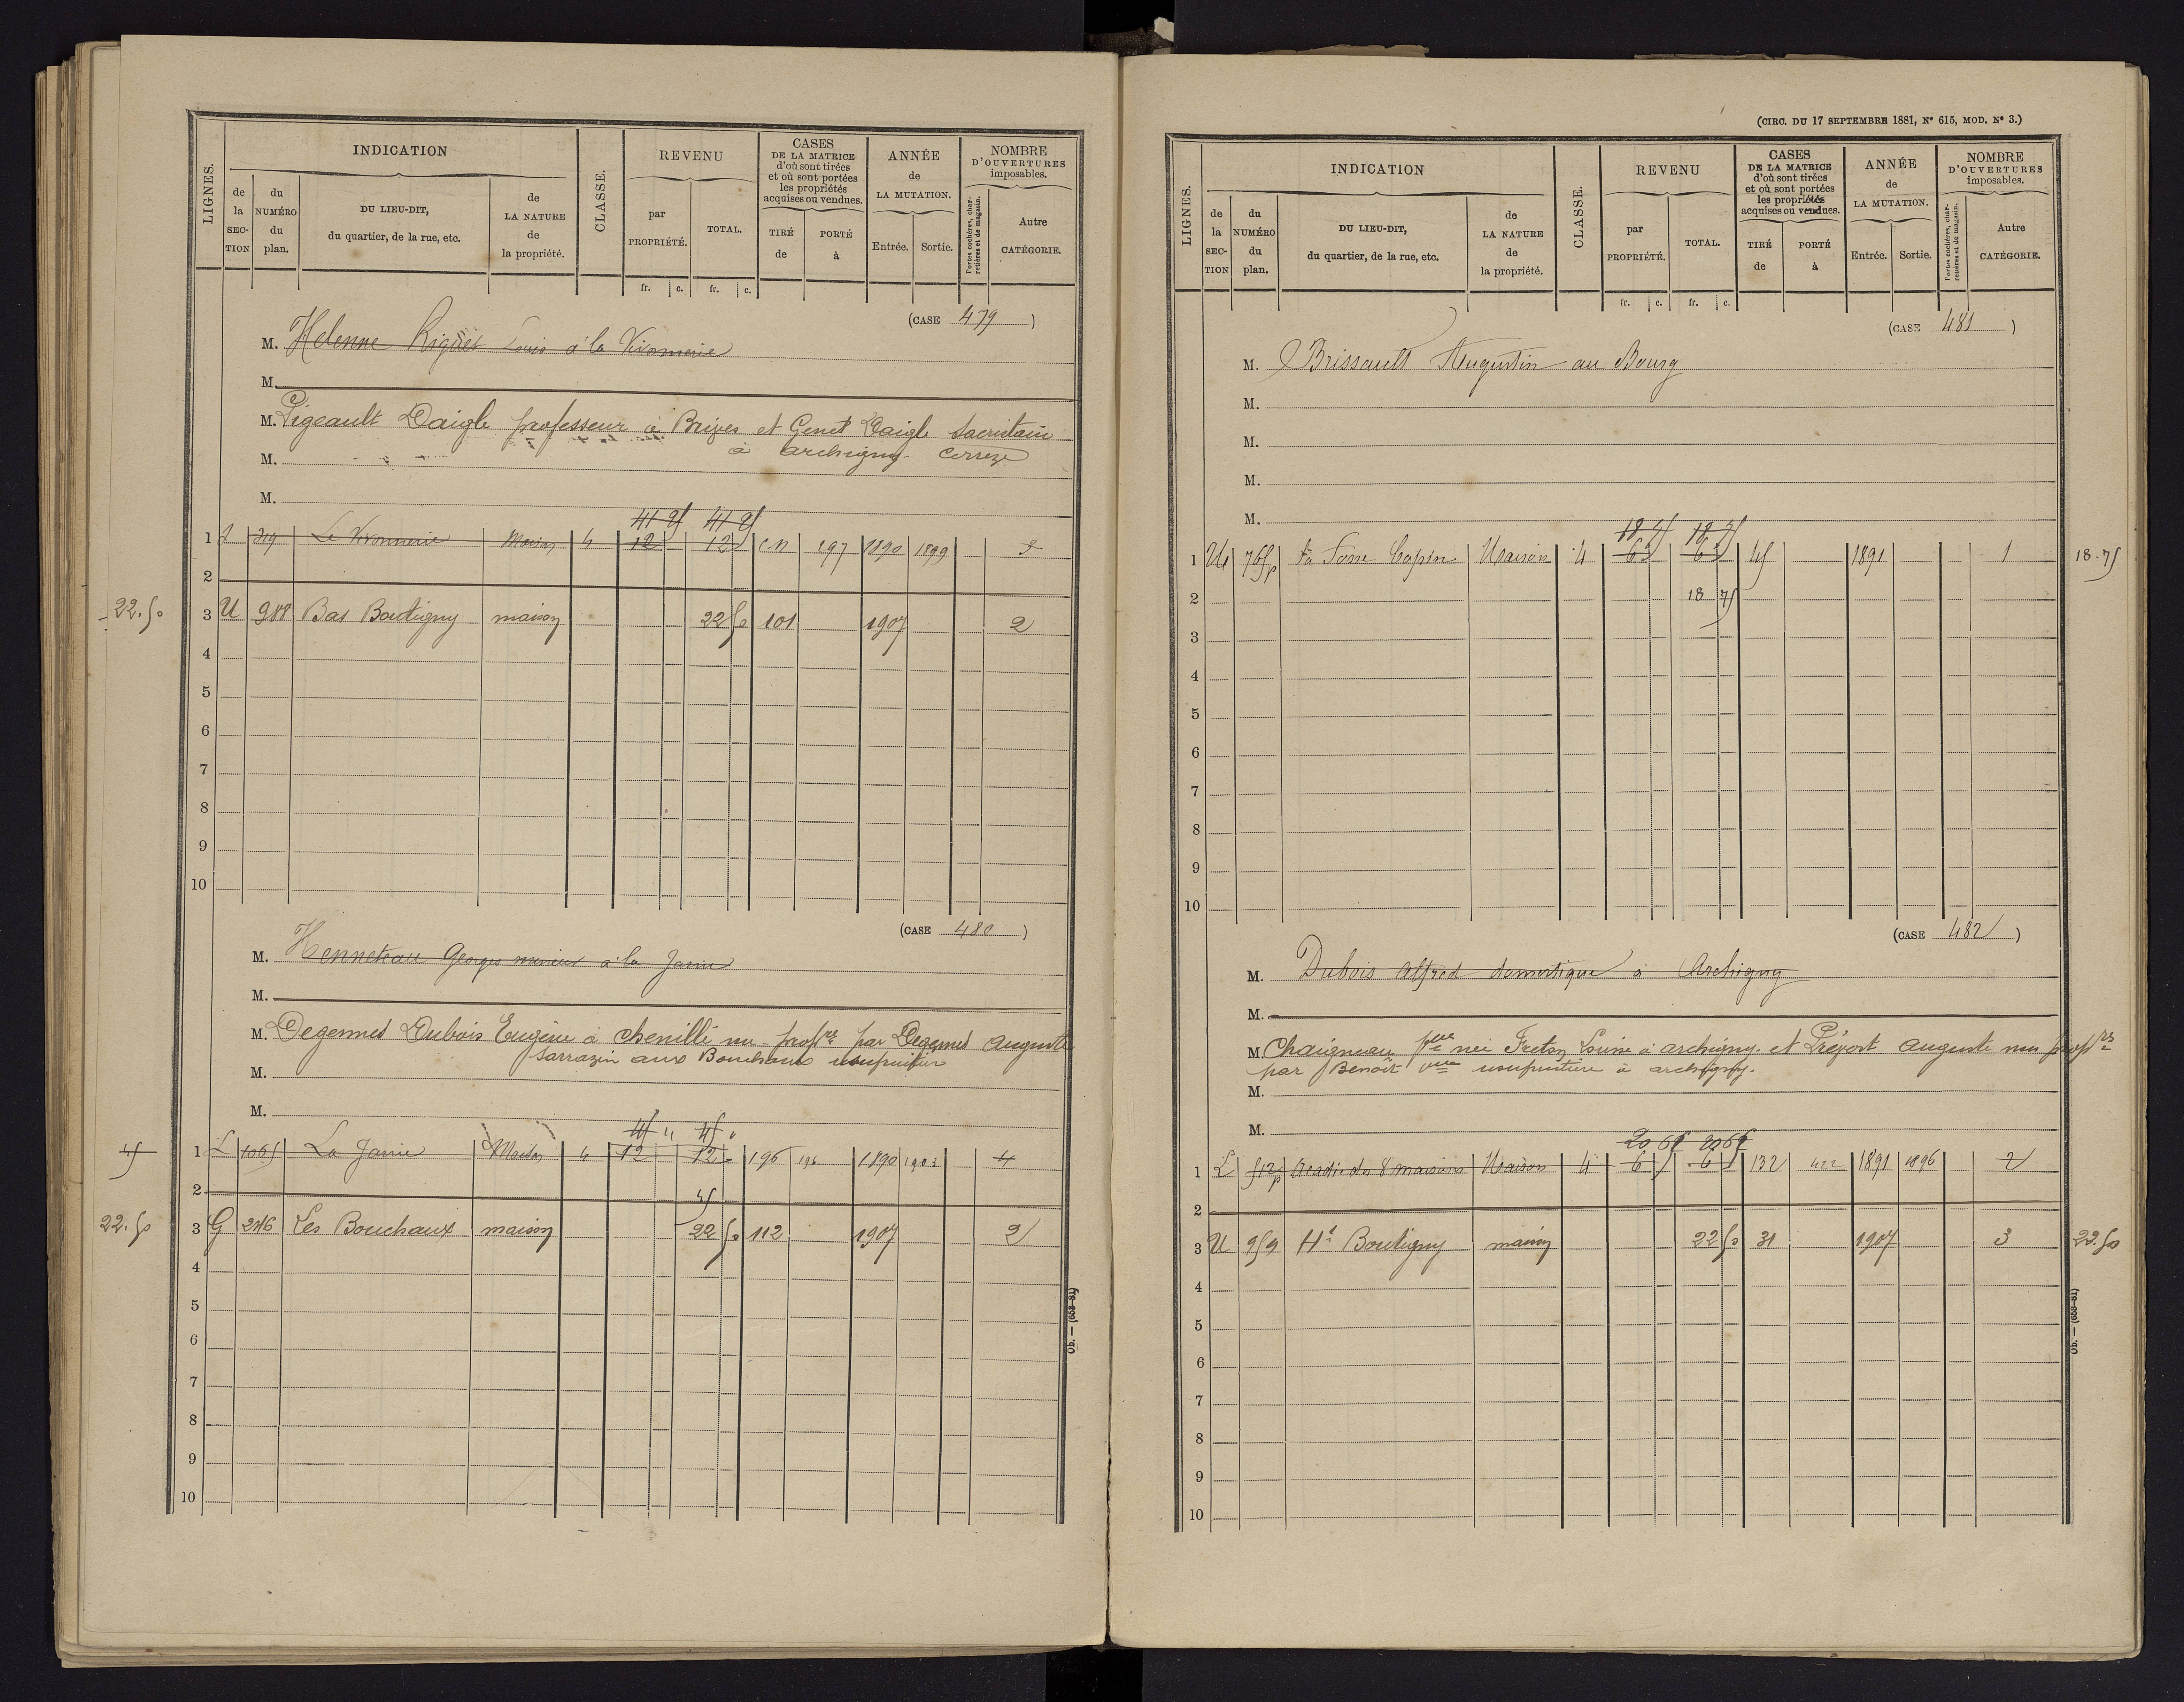 INDICATION
REVENU
CASES
DE LA MATRICE
d'où sont tirées
et où sont portées
les propriétés
acquises ou vendues.
ANNÉE
de
LA MUTATION.
NOMBRE
D'OUVERTURES
imposables.
LIGNES.
de la SECTION
du NUMÉRO du plan.
DU LIEU-DIT,
du quartier, de la rue, etc.
de LA NATURE de la propriété.
CLASSE.
par PROPRIÉTÉ.
TOTAL.
TIRÉ de
PORTÉ à
Entrée.
Sortie.
Portes cochères, charretières et de magasin.
Autre CATÉGORIE.
fr. c. fr. c.
(CASE 479)
M. Helenne Riguet Louis à la Vivonnerie
M.
M. Pigeault Daigle professeur à Brives et Genet Daigle Sacristain
M. à archigny Correze
M.
41 25 41 25
1 319 La Vivonnerie Maison 4 12 12 C N 197 1890 1899
2
22.50 3 U 988 Bas Boutigny maison 22 50 101 1907 2
4
5
6
7
8
9
10
(CASE 480)
M. Henneteau Georges à la Janrie
M.
M. Degennes Dubois Eugène à chenillé nu-propre par Degennes Auguste
Sarrazin aux Bouchaux usufruitier
M.
M.
45 " 45 "
45 1 L 1065 La Janrie Maison 4 12 12 196 196 1890 1903 4
2 45
22.50 3 G 246 Les Bouchaux maison 22 50 112 1907 2
4
5
6
7
8
9
10
Ob. — (688-81)
(CIRC. DU 17 SEPTEMBRE 1881, N° 615, MOD. N° 3.)
INDICATION
REVENU
CASES
DE LA MATRICE
d'où sont tirées
et où sont portées
les propriétés
acquises ou vendues.
ANNÉE
de
LA MUTATION.
NOMBRE
D'OUVERTURES
imposables.
LIGNES.
de la SECTION
du NUMÉRO du plan.
DU LIEU-DIT,
du quartier, de la rue, etc.
de LA NATURE de la propriété.
CLASSE.
par PROPRIÉTÉ.
TOTAL.
TIRÉ de
PORTÉ à
Entrée.
Sortie.
Portes cochères, charretières et de magasin.
Autre CATÉGORIE.
fr. c. fr. c.
(CASE 481)
M. Brissault Augustin au Bourg
M.
M.
M.
M.
18 75 18 75
1 U 765p La Fosse Capin Maison 4 45 1891 1 18.75
2 18 75
3
4
5
6
7
8
9
10
(CASE 482)
M. Dubois Alfred domestique à Archigny
M.
M. Chaigneau née Freton Louise à archigny et Prévost auguste nu propres
par Benoit vve usufruitière à archigny.
M.
M.
20 62 20 62
1 L 512p Acadie des 8 maisons Maison 4 6 6 132 422 1891 1896 2
2
3 U 959 Ht Boutigny maison 22 50 31 1907 3 22.50
4
5
6
7
8
9
10
Ob. — (688-81)